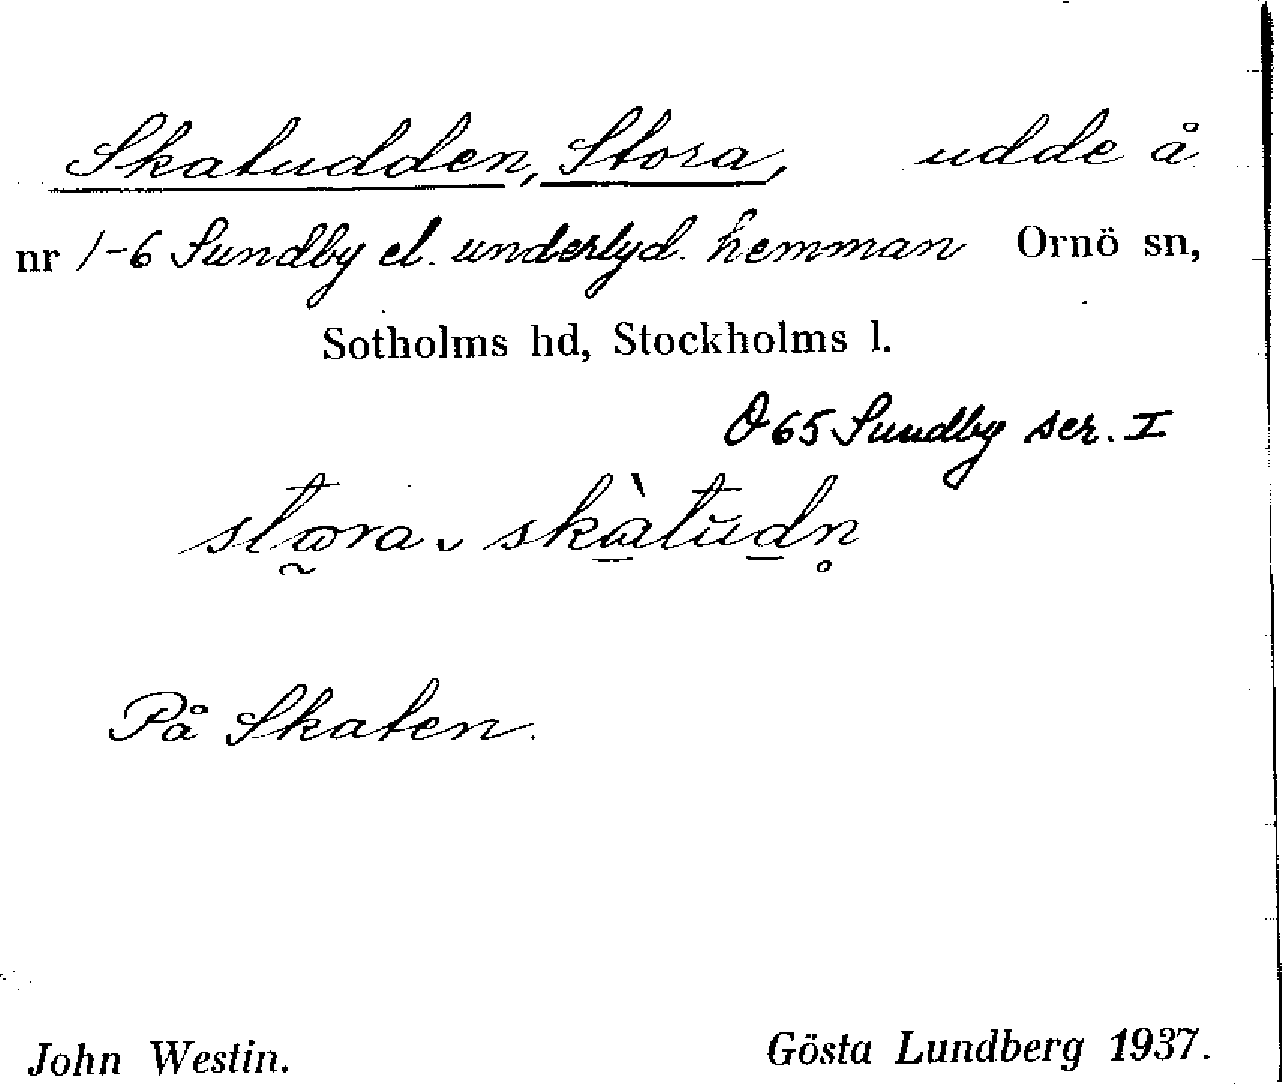 Skatudden, Stora, udde å
nr 1-6 Sundby el. underlyd. hemman Ornö sn,
Sotholms hd, Stockholms l.
Ö 65 Sundby ser. I
På Skaten.
John Westin. Gösta Lundberg 1937.